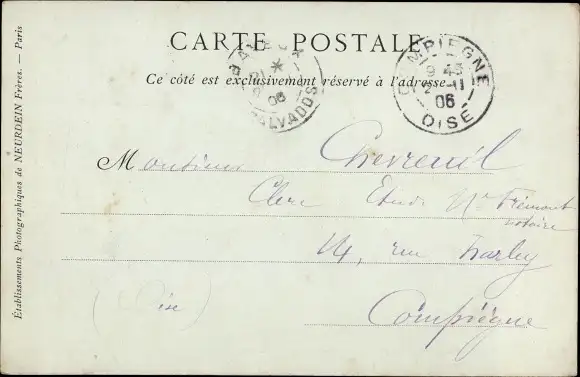 CARTE POSTALE
Ce côté est exclusivement réservé à l'adresse
COMPIEGNE
9 45
2 -11
06
OISE
06
CALVADOS
Monsieur Chevreuil
Clerc Etude Me Frémont
notaire
14, rue Harley
(Oise)
Compiègne
Établissements Photographiques de NEURDEIN Frères. — Paris